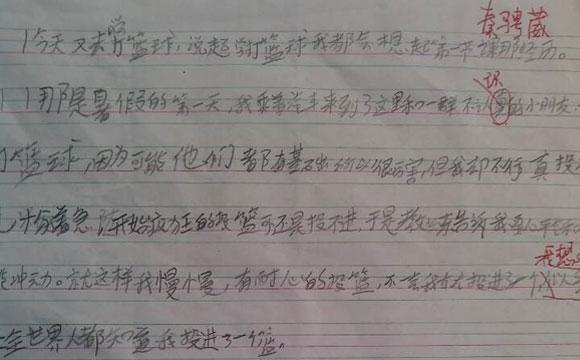 秦骋葳
今天又去学打篮球,说起学打篮球我都会想起第一节课那经历。
那是暑假的第一天,我乘着汽车来到了这里和一群不认识的小朋友
篮球,因为可能他们都有基础所以很厉害,但我却不行真投
分着急,开始疯狂的投篮可还是投不进,于是教练告诉我要心平
冲动。就这样我慢慢,有耐心的投篮,不一会我就投进了一个
全世界人都知道我投进了一个篮。